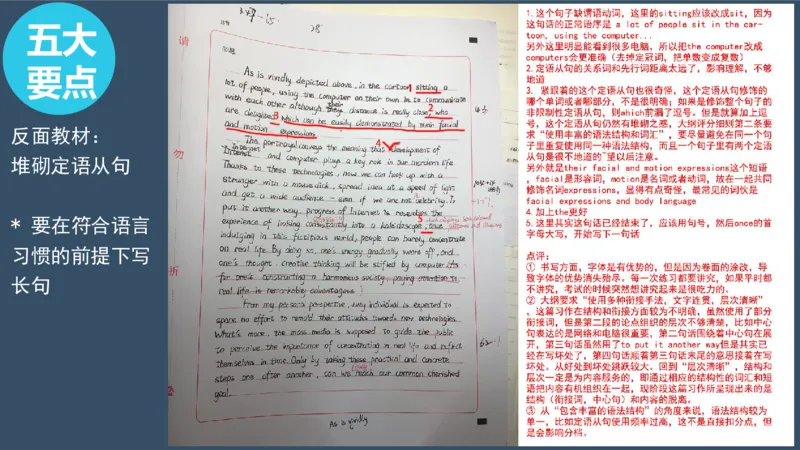 五大
要点
反面教材：
堆砌定语从句
* 要在符合语言
习惯的前提下写
长句
28
As is vividly depicted above, in the cartoon sitting a
lot of people, using the computer on their own to communicate
with each other although their distance is really close, who
are delighted which can be easily demonstrated by their facial
and motion expressions.
This portrayal conveys the meaning that development of
Internet and computer plays a key role in our modern life.
Thanks to these technologies, now we can hook up with a
stranger with a mouseclick, spread idea at a speed of light
and get a wide audience – even if we are not celebrity. To
put it another way, progress of Internet is
experience of looking constantly into a kaleidoscope, once
indulging in this fictitious world, people can barely concentrate
on real life. By doing so, one's energy gradually wears off, and
one's thought creative thinking will be stifled by computer. It's
for one's constructing a harmonious society, paying attention to
real life is remarkably advantageous!
From my personal perspective, every individual is expected to
space no effort to remold their attitudes toward new technologies.
What's more, the mass media is supposed to guide the public
to perceive the importance of concentrating on real life and reflect
themselves in time. Only by taking these practical and concrete
steps one after another, can we reach our common cherished
goal.
As is vividly
1. 这个句子缺谓语动词，这里的sitting应该改成sit，因为
这句话的正常语序是 a lot of people sit in the car-
toon, using the computer...
另外这里明显能看到很多电脑，所以把the computer改成
computers会更准确（去掉定冠词，把单数变成复数）
2. 定语从句的关系词和先行词距离太远了，影响理解，不够
地道
3. 紧跟着的这个定语从句也很奇怪，这个定语从句修饰的
哪个单词或者哪部分，不是很明确；如果是修饰整个句子的
非限制性定语从句，则which前漏了逗号。但是就算加上逗
号，这个定语从句仍然有堆砌之感，大纲评分细则第二条要
求“使用丰富的语法结构和词汇”，要尽量避免在同一个句
子里重复使用同一种语法结构，而且一个句子里有两个定语
从句是很不地道的~望以后注意。
另外就是their facial and motion expressions这个短语
，facial是形容词，motion是名词或者动词，放在一起共同
修饰名词expressions，显得有点奇怪，最常见的词伙是
facial expressions and body language
4. 加上the更好
5. 这里其实这句话已经结束了，应该用句号，然后once的首
字母大写，开始写下一句话
点评：
① 书写方面，字体是有优势的，但是因为卷面的涂改，导
致字体的优势消失殆尽，每一次练习都要讲究，如果平时都
不讲究，考试的时候突然想讲究起来是很吃力的。
② 大纲要求“使用多种衔接手法，文字连贯，层次清晰”
，这篇习作在结构和衔接方面较为不明确，虽然使用了部分
衔接词，但是第二段的论点组织的层次不够清楚，比如中心
句表达的是网络和电脑很重要，第二句话围绕着中心句在展
开，第三句话虽然用了to put it another way但是其实已
经在写坏处了，第四句话顺着第三句话末尾的意思接着在写
坏处。从好处到坏处跳跃较大。回到“层次清晰”，结构和
层次一定是为内容服务的，即通过相应的结构性的词汇和短
语把内容有机组织在一起，现阶段这篇习作所呈现出来的是
结构（衔接词，中心句）和内容的脱离。
③ 从“包含丰富的语法结构”的角度来说，语法结构较为
单一，比如定语从句使用频率过高，这不是直接扣分点，但
是会影响分档。